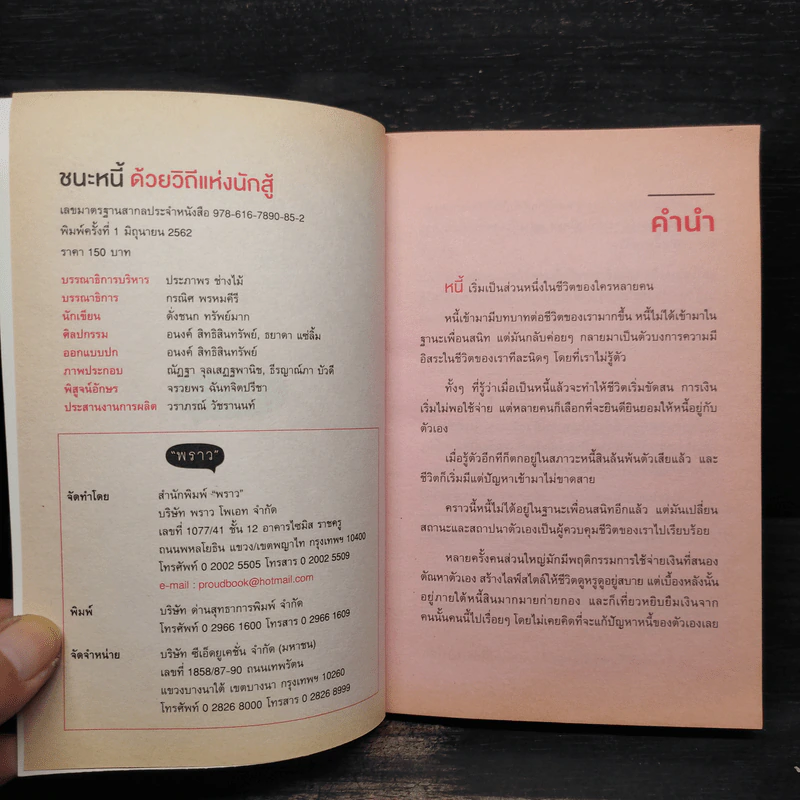 ชนะหนี้ ด้วยวิถีแห่งนักสู้
เลขมาตรฐานสากลประจำหนังสือ 978-616-7890-85-2
พิมพ์ครั้งที่ 1 มิถุนายน 2562
ราคา 150 บาท
บรรณาธิการบริหาร ประภาพร ช่างไม้
บรรณาธิการ กรณิศ พรหมคีรี
นักเขียน ตั้งชนก ทรัพย์มาก
ศิลปกรรม อนงค์ สิทธิสินทรัพย์, ธยาดา แซ่ลิ้ม
ออกแบบปก อนงค์ สิทธิสินทรัพย์
ภาพประกอบ ณัฏฐา จุลเสฏฐพานิช, ธีรญาณ์ภา บัวดี
พิสูจน์อักษร จรวยพร ฉันทจิตปรีชา
ประสานงานการผลิต วราภรณ์ วัชรานนท์
"พราว"
จัดทำโดย สำนักพิมพ์ "พราว"
บริษัท พราว โพเอท จำกัด
เลขที่ 1077/41 ชั้น 12 อาคารไซมิส ราชครู
ถนนพหลโยธิน แขวง/เขตพญาไท กรุงเทพฯ 10400
โทรศัพท์ 0 2002 5505 โทรสาร 0 2002 5509
e-mail : proudbook@hotmail.com
พิมพ์ บริษัท ด่านสุทธาการพิมพ์ จำกัด
โทรศัพท์ 0 2966 1600 โทรสาร 0 2966 1609
จัดจำหน่าย บริษัท ซีเอ็ดยูเคชั่น จำกัด (มหาชน)
เลขที่ 1858/87-90 ถนนเทพรัตน
แขวงบางนาใต้ เขตบางนา กรุงเทพฯ 10260
โทรศัพท์ 0 2826 8000 โทรสาร 0 2826 8999
คำนำ
หนี้ เริ่มเป็นส่วนหนึ่งในชีวิตของใครหลายคน
หนี้เข้ามามีบทบาทต่อชีวิตของเรามากขึ้น หนี้ไม่ได้เข้ามาใน
ฐานะเพื่อนสนิท แต่มันกลับค่อยๆ กลายมาเป็นตัวบงการความมี
อิสระในชีวิตของเราทีละนิดๆ โดยที่เราไม่รู้ตัว
ทั้งๆ ที่รู้ว่าเมื่อเป็นหนี้แล้วจะทำให้ชีวิตเริ่มขัดสน การเงิน
เริ่มไม่พอใช้จ่าย แต่หลายคนก็เลือกที่จะยินดียินยอมให้หนี้อยู่กับ
ตัวเอง
เมื่อรู้ตัวอีกทีก็ตกอยู่ในสภาวะหนี้สินล้นพ้นตัวเสียแล้ว และ
ชีวิตก็เริ่มมีแต่ปัญหาเข้ามาไม่ขาดสาย
คราวนี้หนี้ไม่ได้อยู่ในฐานะเพื่อนสนิทอีกแล้ว แต่มันเปลี่ยน
สถานะและสถาปนาตัวเองเป็นผู้ควบคุมชีวิตของเราไปเรียบร้อย
หลายครั้งคนส่วนใหญ่มักมีพฤติกรรมการใช้จ่ายเงินที่สนอง
ตัณหาตัวเอง สร้างไลฟ์สไตล์ให้ชีวิตดูหรูดูอยู่สบาย แต่เบื้องหลังนั้น
อยู่ภายใต้หนี้สินมากมายก่ายกอง และก็เที่ยวหยิบยืมเงินจาก
คนนั้นคนนี้ไปเรื่อยๆ โดยไม่เคยคิดที่จะแก้ปัญหาหนี้ของตัวเองเลย